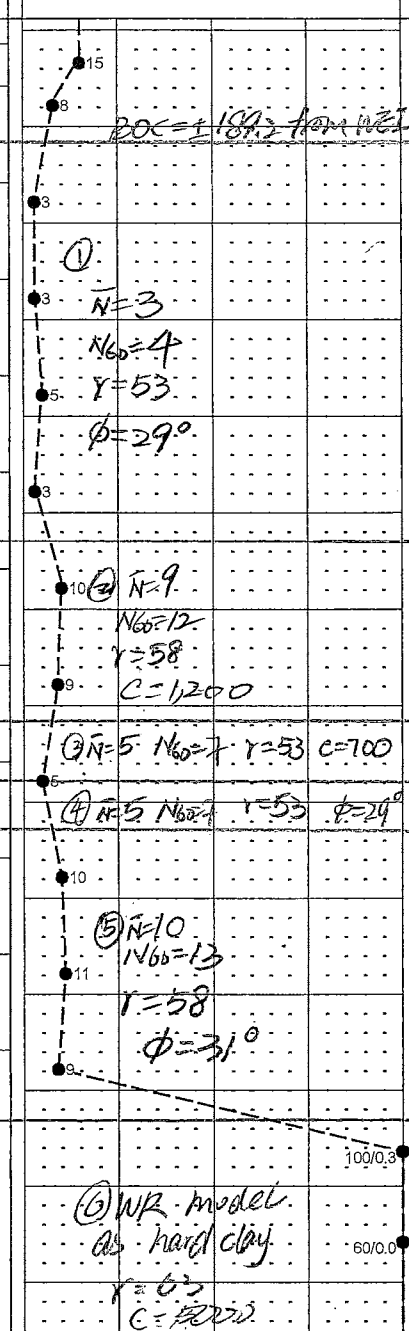 15
8
BOC=±189.2 from WEI
3
①
3
N̄=3
N60=4
γ=53
5
φ=29°
3
10 ② N̄=9
N60=12
γ=58
9
C=1,200
③ N̄=5 N60=7 γ=53 C=700
5
④ N̄=5 N60=7 γ=53 φ=29°
10
⑤ N̄=10
N60=13
11
γ=58
φ=31°
9
100/0.3
⑥ WR model
as hard clay
60/0.0
γ=63
C=5000